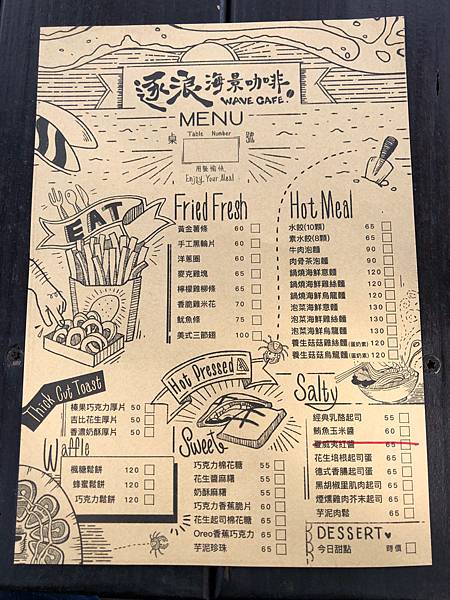 逐浪海景咖啡
WAVE CAFE
MENU
Table Number
桌 號
用餐愉快
Enjoy Your Meal
EAT
Fried Fresh
黃金薯條 60
手工黑輪片 60
洋蔥圈 60
麥克雞塊 65
檸檬雞柳條 65
香脆雞米花 70
魷魚條 75
美式三節翅 100
Hot Meal
水餃(10顆) 65
素水餃(8顆) 65
牛肉泡麵 90
肉骨茶泡麵 90
鍋燒海鮮意麵 120
鍋燒海鮮雞絲麵 120
鍋燒海鮮烏龍麵 120
泡菜海鮮意麵 130
泡菜海鮮雞絲麵 130
泡菜海鮮烏龍麵 130
養生菇菇雞絲麵(蛋奶素) 120
養生菇菇烏龍麵(蛋奶素) 120
Thick Cut Toast
榛果巧克力厚片 50
吉比花生厚片 50
香濃奶酥厚片 50
Waffle
楓糖鬆餅 120
蜂蜜鬆餅 120
巧克力鬆餅 120
Hot Pressed
Sweet
巧克力棉花糖 55
花生醬麻糬 55
奶酥麻糬 55
巧克力香蕉脆片 60
花生起司棉花糖 65
Oreo香蕉巧克力 65
芋泥珍珠 65
Salty
經典乳酪起司 55
鮪魚玉米醬 60
夏威夷紅醬 65
花生培根起司蛋 65
德式香腸起司蛋 65
黑胡椒里肌肉起司 65
煙燻雞肉芥末起司 65
芋泥肉鬆 65
DESSERT
今日甜點 時價